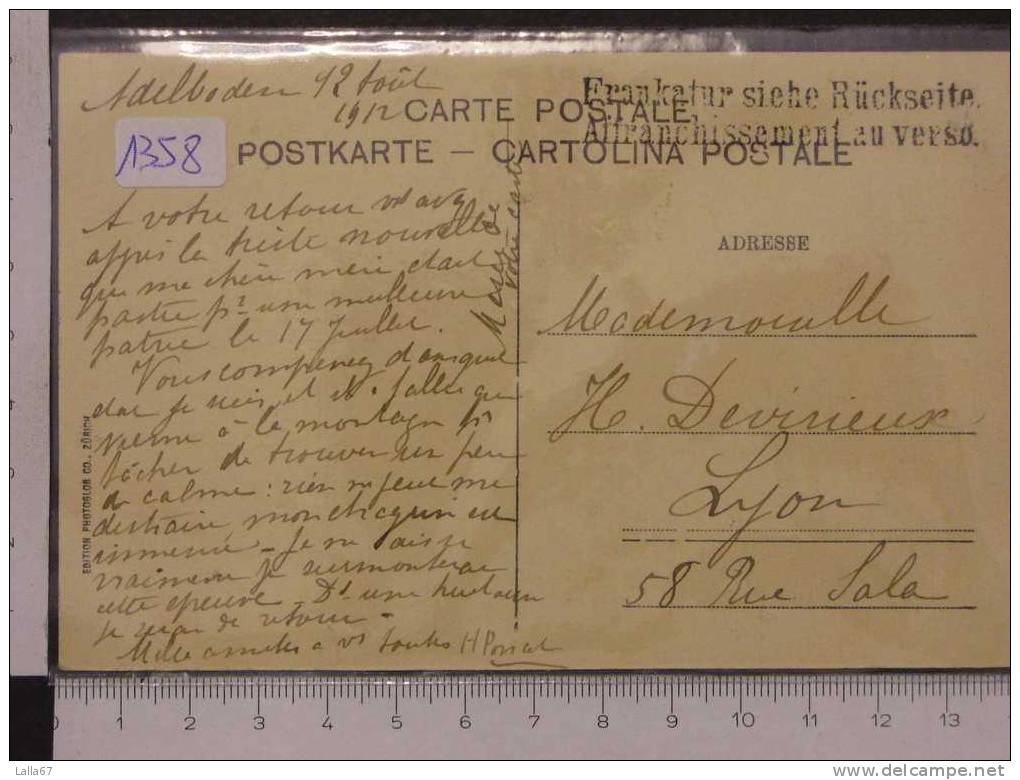 Adelboden 12 Août
1912
Frankatur siehe Rückseite.
Affranchissement au verso.
CARTE POSTALE
POSTKARTE – CARTOLINA POSTALE
1358
ADRESSE
A votre retour vs avez
appris la triste nouvelle
que ma chère mère était
partie pr une meilleure
patrie le 17 Juillet.
Vous comprenez dans quel
état je suis et il a fallu que
vienne à la montagne pr
tâcher de trouver un peu
de calme : rien ne peut me
distraire mon chagrin est
immense – Je ne sais si
vraiment je surmonterai
cette épreuve – Ds une huitaine
je serai de retour –
Mille amitiés à vs toutes H
Merci de
votre carte
Mademoiselle
H. Devirieux
Lyon
58 Rue Sala
EDITION PHOTOGLOB CO., ZÜRICH
0 1 2 3 4 5 6 7 8 9 10 11 12 13
Lalla67
delcampe.net